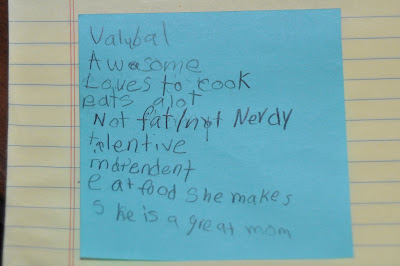 Valubal
Awesome
Loves to cook
eats alot
Not fat/not Nerdy
talentive
indarendent
e at food she makes
s he is a great mom